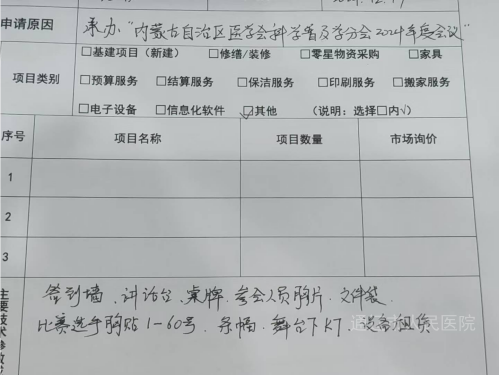 申请原因 承办"内蒙古自治区医学会科学普及学分会2024年度会议"
项目类别
□基建项目（新建） □修缮/装修 □零星物资采购 □家具
□预算服务 □结算服务 □保洁服务 □印刷服务 □搬家服务
□电子设备 □信息化软件 ☑其他 （说明：选择□内√）
序号 项目名称 项目数量 市场询价
1
2
3
主要技术参数
签到墙、讲话台、桌牌、参会人员胸片、文件袋、
比赛选手胸贴1-60号、条幅、舞台下KT、设备租赁
民医院